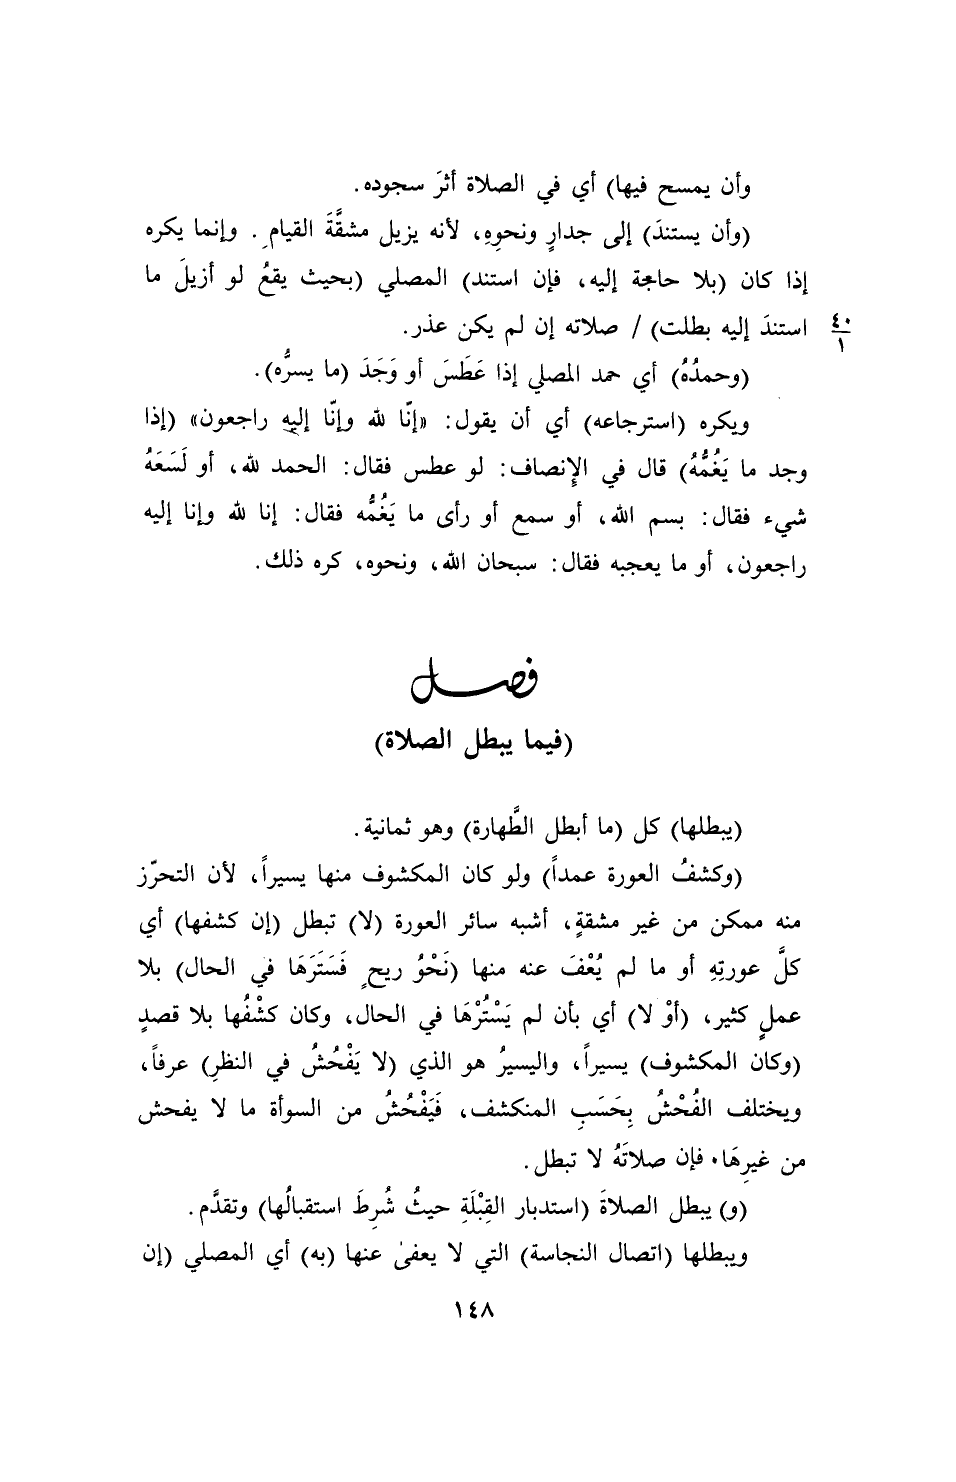 وأن يمسح فيها) أي في الصلاة أثرَ سجوده.
(وأن يستندَ) إلى جدارٍ ونحوِهِ، لأنه يزيل مشقَّةَ القيامِ. وإنما يكره
إذا كان (بلا حاجة إليه، فإن استند) المصلي (بحيث يقعُ لو أزيلَ ما
استندَ إليه بطلت) / صلاته إن لم يكن عذر.
٤٠
١
(وحمدُهُ) أي حمد المصلي إذا عَطَسَ أو وَجَدَ (ما يسرُّه).
ويكره (استرجاعه) أي أن يقول: «إنّا لله وإنّا إليه راجعون» (إذا
وجد ما يَغُمُّهُ) قال في الإنصاف: لو عطس فقال: الحمد لله، أو لَسَعَهُ
شيء فقال: بسم الله، أو سمع أو رأى ما يَغُمُّه فقال: إنا لله وإنا إليه
راجعون، أو ما يعجبه فقال: سبحان الله، ونحوه، كره ذلك.
فصل
(فيما يبطل الصلاة)
(يبطلها) كل (ما أبطل الطَّهارة) وهو ثمانية.
(وكشفُ العورة عمداً) ولو كان المكشوف منها يسيراً، لأن التحرّز
منه ممكن من غير مشقةٍ، أشبه سائر العورة (لا) تبطل (إن كشفها) أي
كلَّ عورتِهِ أو ما لم يُعْفَ عنه منها (نَحْوُ ريحٍ فَسَتَرَهَا في الحال) بلا
عملٍ كثير، (أوْ لا) أي بأن لم يَسْتُرْهَا في الحال، وكان كشْفُها بلا قصدٍ
(وكان المكشوف) يسيراً، واليسيرُ هو الذي (لا يَفْحُشُ في النظرِ) عرفاً،
ويختلف الفُحْشُ بِحَسَبِ المنكشف، فَيَفْحُشُ من السوأة ما لا يفحش
من غيرِهَا. فإن صلاتَهُ لا تبطل.
(و) يبطل الصلاةَ (استدبار القِبْلَةِ حيثُ شُرِطَ استقبالُها) وتقدَّم.
ويبطلها (اتصال النجاسة) التي لا يعفىٰ عنها (به) أي المصلي (إن
١٤٨